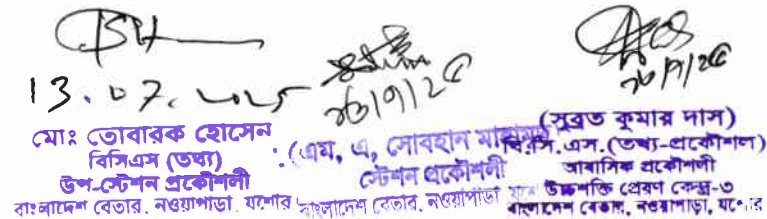 13.07.2025
মোঃ তোবারক হোসেন
বিসিএস (তথ্য)
উপ-স্টেশন প্রকৌশলী
বাংলাদেশ বেতার, নওয়াপাড়া, যশোর
(এম, এ, সোবহান
স্টেশন প্রকৌশলী
বাংলাদেশ বেতার, নওয়াপাড়া
(সুব্রত কুমার দাস)
বি.সি.এস.(তথ্য-প্রকৌশল)
আবাসিক প্রকৌশলী
উচ্চশক্তি প্রেরণ কেন্দ্র-৩
বাংলাদেশ বেতার, নওয়াপাড়া, যশোর